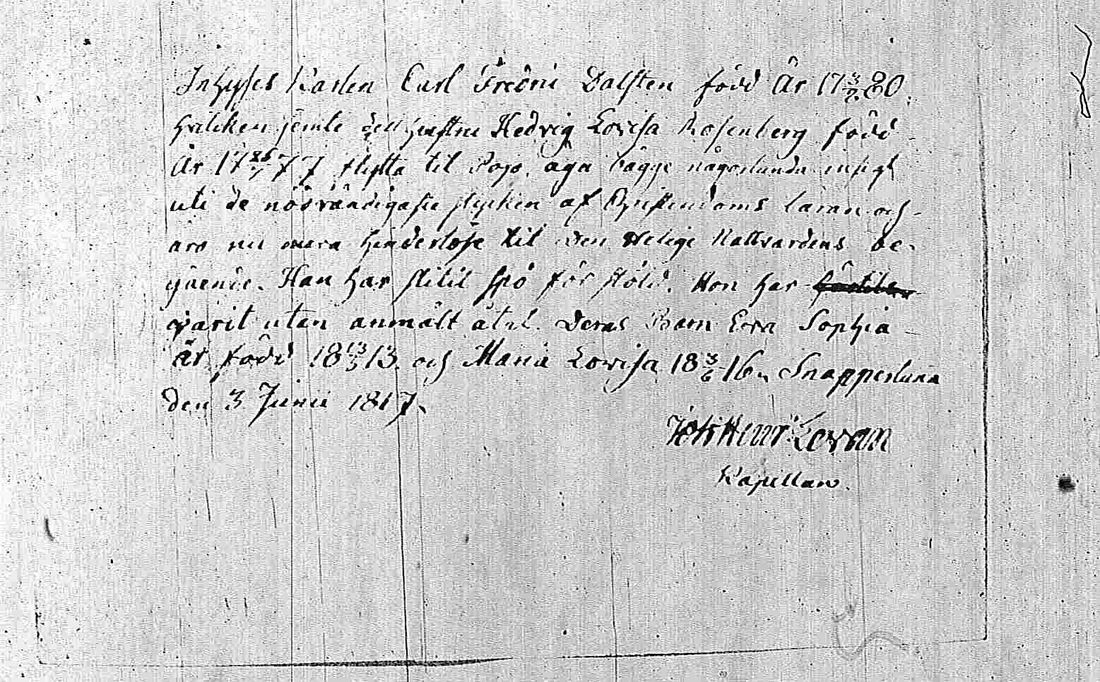 Inhyses Karlen Carl Fredric Dalsten född År 17 3/2 80.
hvilken jemte dess hustru Hedvig Lovisa Rosenberg född
År 17 77 flytta til Pojo, äga bägge någorlunda insigt
uti de nödvändigaste stycken af Christendoms läran och
äro nu mera hinderlöse til Den Helige Nattvardens be-
gående. Han har slitit spö för stöld. Hon har
varit utan anmält åtal. Deras Barn Eva Sophia
är född 18 13/3 13. och Maria Lovisa 18 3/6 16. Snappertuna
den 3 Junii 1817.
Joh Henr Lovan
Kapellan.